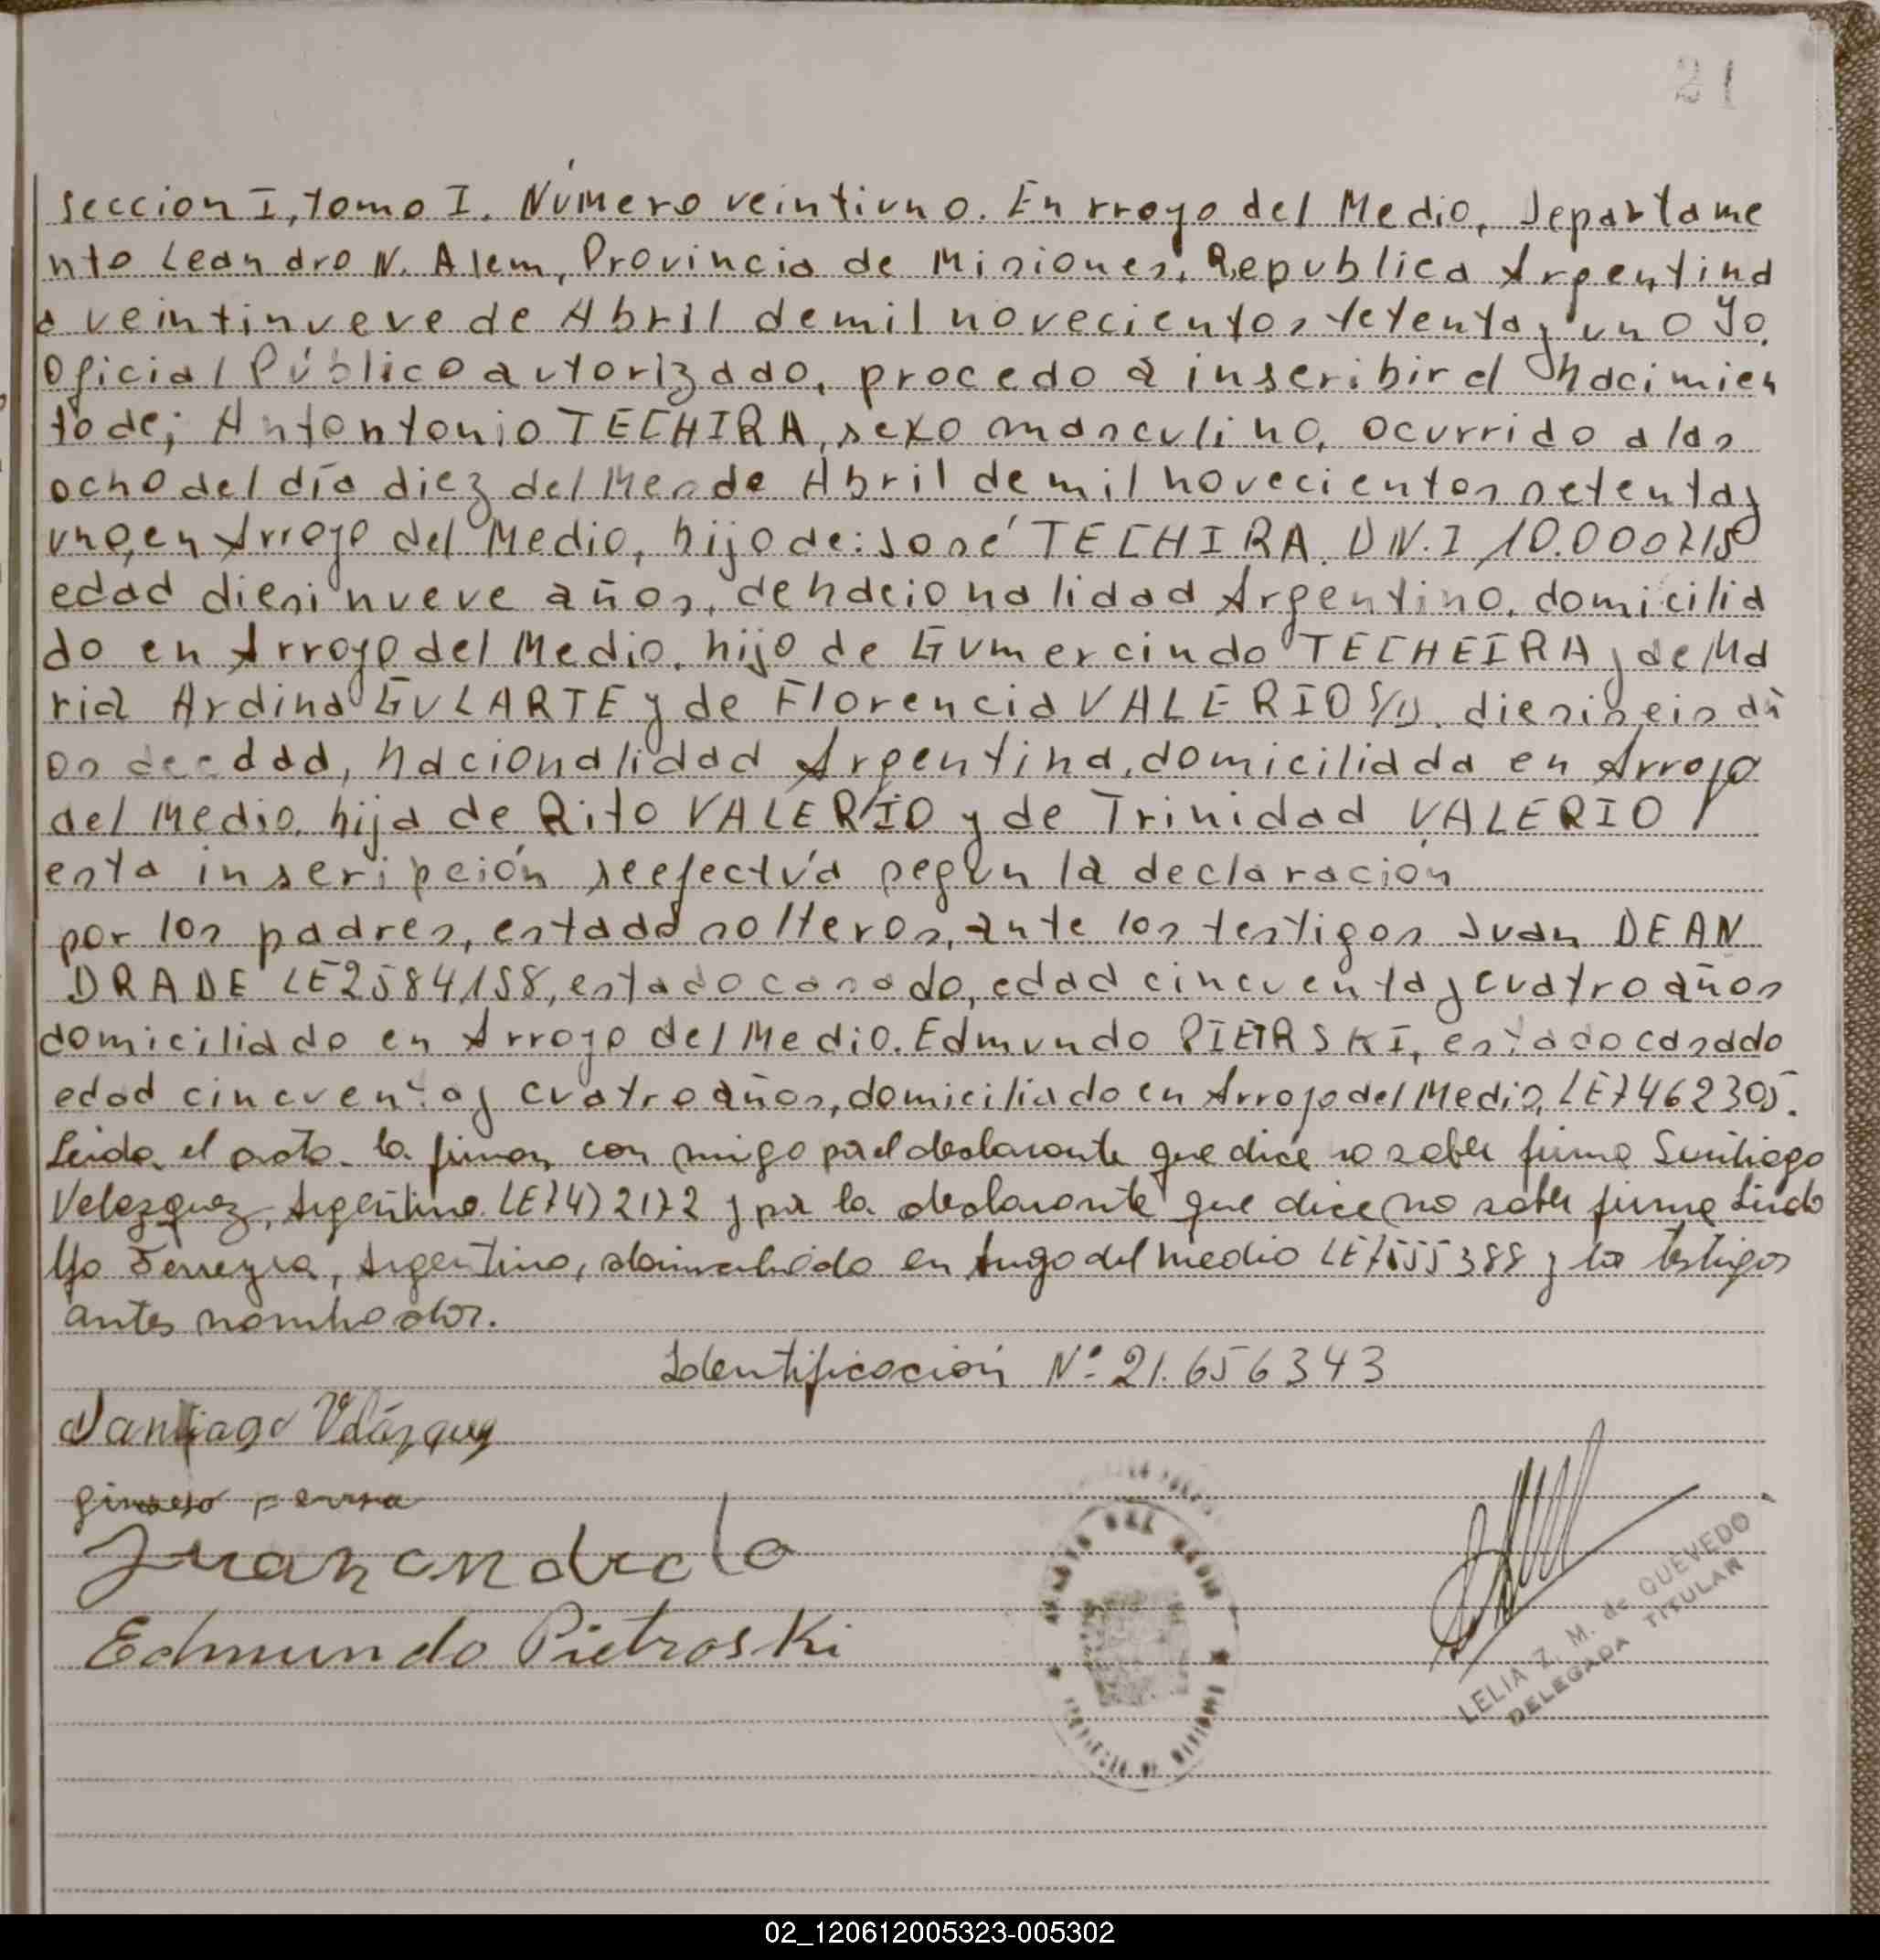 21
Seccion I, tomo I. Número veintiuno. En rroyo del Medio, Departame
nto Leandro N. Alem, Provincia de Misiones, Republica Argentina
a veintinueve de Abril demil novecientos setenta y uno Yo,
Oficial Público autorizado, procedo a inscribir el nacimien
to de; Antontonio TECHIRA, sexo masculino, ocurrido a las
ocho del día diez del Mes de Abril de mil novecientos setenta y
uno, en Arroyo del Medio, hijo de: José TECHIRA. DN.I 10.000215
edad diesinueve años, de nacionalidad Argentino, domicilia
do en Arroyo del Medio, hijo de Gumercindo TECHEIRA y de Ma
ria Ardina GULARTE y de Florencia VALERIO S/D. diesiseis añ
os de edad, nacionalidad Argentina, domiciliada en Arroyo
del Medio, hija de Rito VALERIO y de Trinidad VALERIO
esta inseripción se efectúa según la declaración
por los padres, estado solteros, ante los testigos Juan DE AN
DRADE LE 2584158, estado casado, edad cincuenta y cuatro años
domiciliado en Arroyo del Medio. Edmundo PIETRSKI, estado casado
edad cincuenta y cuatro años, domiciliado en Arroyo del Medio, LE 7462305.
Leida el acta la firman con migo por el declarante que dice no saber firma Santiago
Velazquez, Argentino LE 7472172 y por la declarante que dice no saber firma
Ferreyra, Argentino, domiciliado en del medio LE 7555388 y los testigos
antes nombrados.
Identificación Nº 21.656343
Santiago Velázquez
Juan andrade
Edmundo Pietroski
LELIA Z. M. de QUEVEDO
DELEGADA TITULAR
02_120612005323-005302